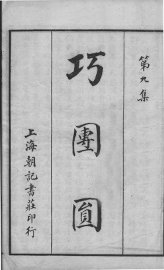 第九集
巧團圓
上海朝記書莊印行